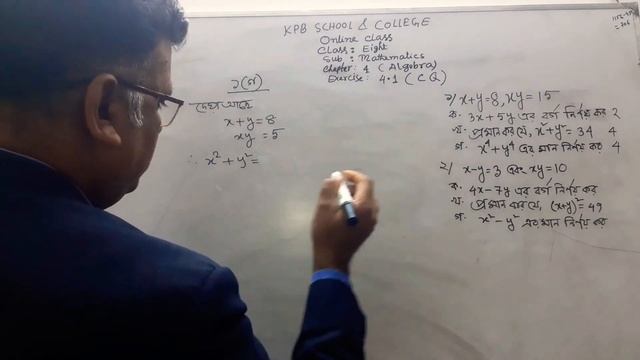 KPB SCHOOL & COLLEGE
Online class
Class: Eight
Sub: Mathematics
Chapter: 4 (Algebra)
Exercise: 4.1 (CQ)
১(গ)
দেওয়া আছে
x+y=8
xy=5
∴ x²+y²=
১) x+y=8, xy=15
ক. 3x+5y এর বর্গ নির্ণয় কর 2
খ. প্রমাণ কর যে, x²+y²=34 4
গ. x⁴+y⁴ এর মান নির্ণয় কর 4
২) x-y=3 এবং xy=10
ক. 4x-7y এর বর্গ নির্ণয় কর
খ. প্রমাণ কর যে, (x+y)²=49
গ. x²-y² এর মান নির্ণয় কর